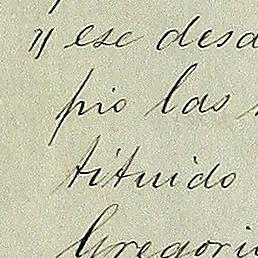 y ese desd
pio las
tituido
Gregori